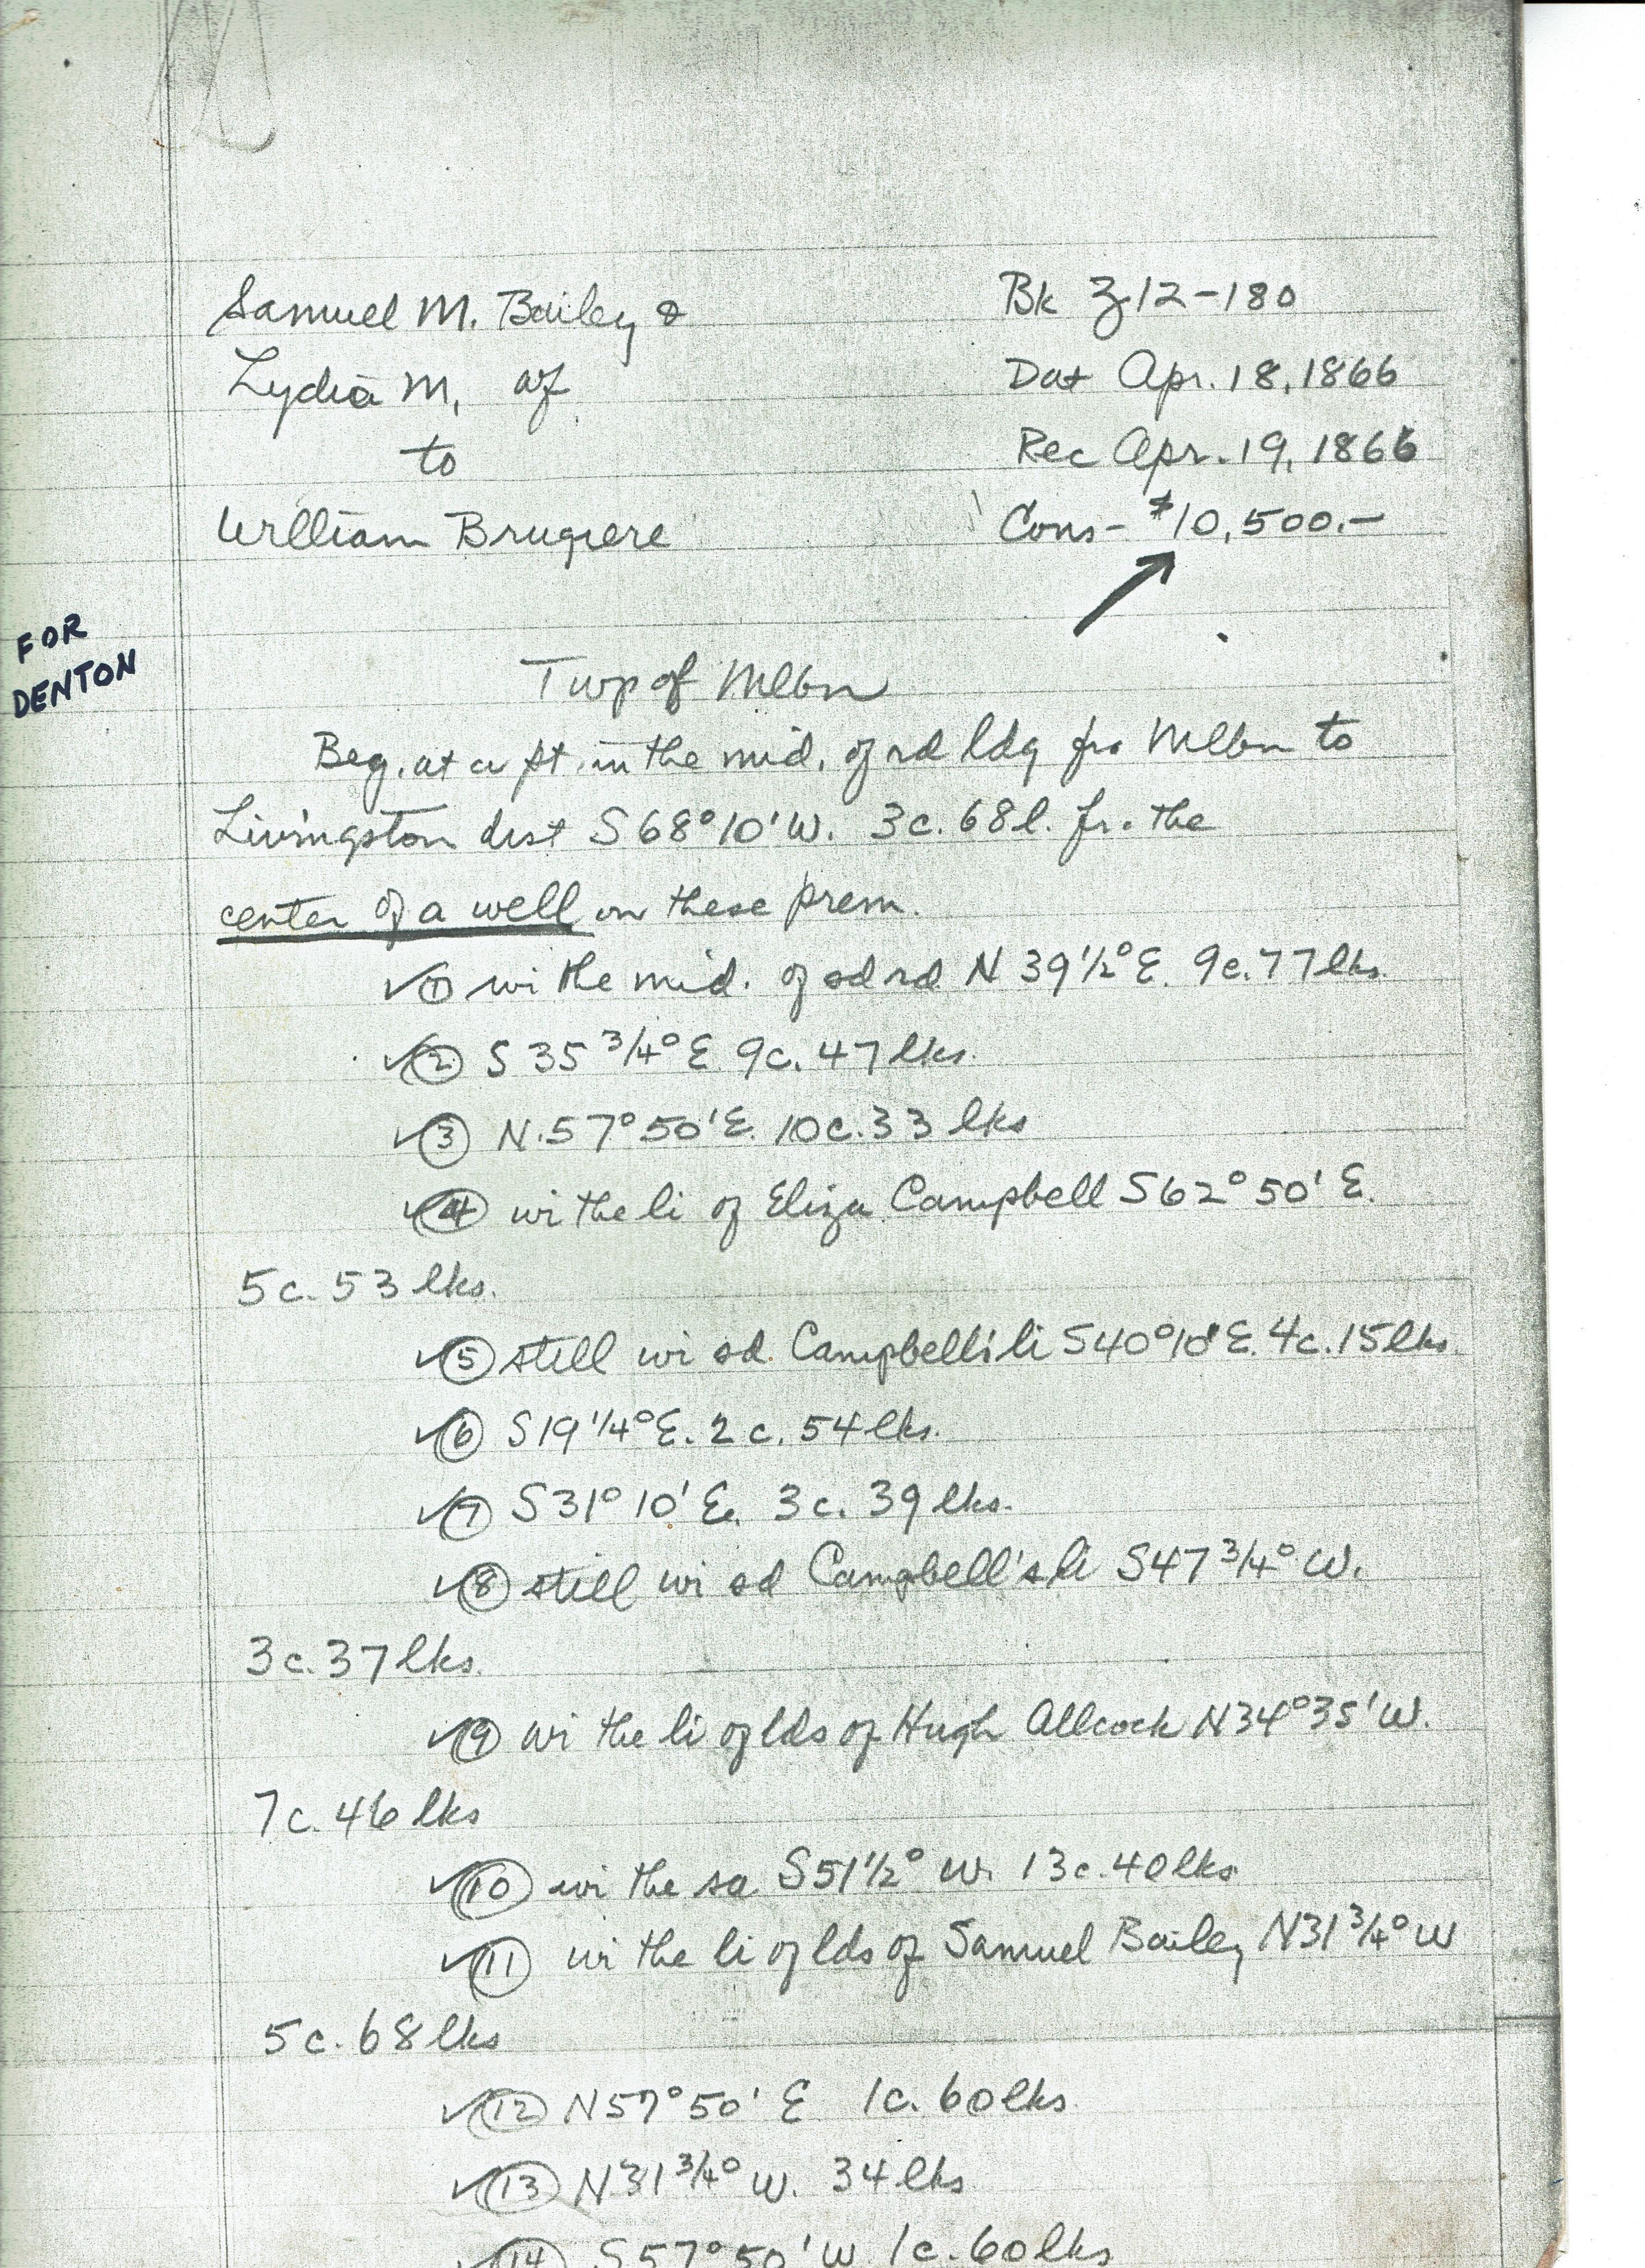 Samuel M. Bailey &
Bk Z12-180
Lydia M, wf
Dat Apr. 18, 1866
to
Rec Apr. 19, 1866
William Brugiere
Cons- $10,500.-
FOR
DENTON
Twp of Mlbn
Beg. at a pt. in the mid. of rd ldg fr. Mlbn to
Livingston dist S68°10'W. 3c. 68l. fr. the
center of a well on these prem.
✓① wi the mid. of sd rd N 39 1/2° E. 9c. 77 lks.
✓② S 35 3/4° E. 9c. 47 lks.
✓③ N. 57° 50' E. 10c. 33 lks
✓④ wi the li of Eliza Campbell S62° 50' E.
5c. 53 lks.
✓⑤ still wi sd. Campbell's li S40°10' E. 4c. 15 lks.
✓⑥ S19 1/4° E. 2 c. 54 lks.
✓⑦ S31° 10' E. 3c. 39 lks.
✓⑧ still wi sd Campbell's li S47 3/4° W.
3c. 37 lks.
✓⑨ wi the li of lds of Hugh Allcock N34°35' W.
7c. 46 lks
✓⑩ wi the sa S51 1/2° W. 13c. 40 lks
✓⑪ wi the li of lds of Samuel Bailey N31 3/4° W
5c. 68 lks
✓⑫ N57° 50' E 1c. 60 lks.
✓⑬ N31 3/4° W. 34 lks
⑭ S57° 50' W. 1c. 60 lks